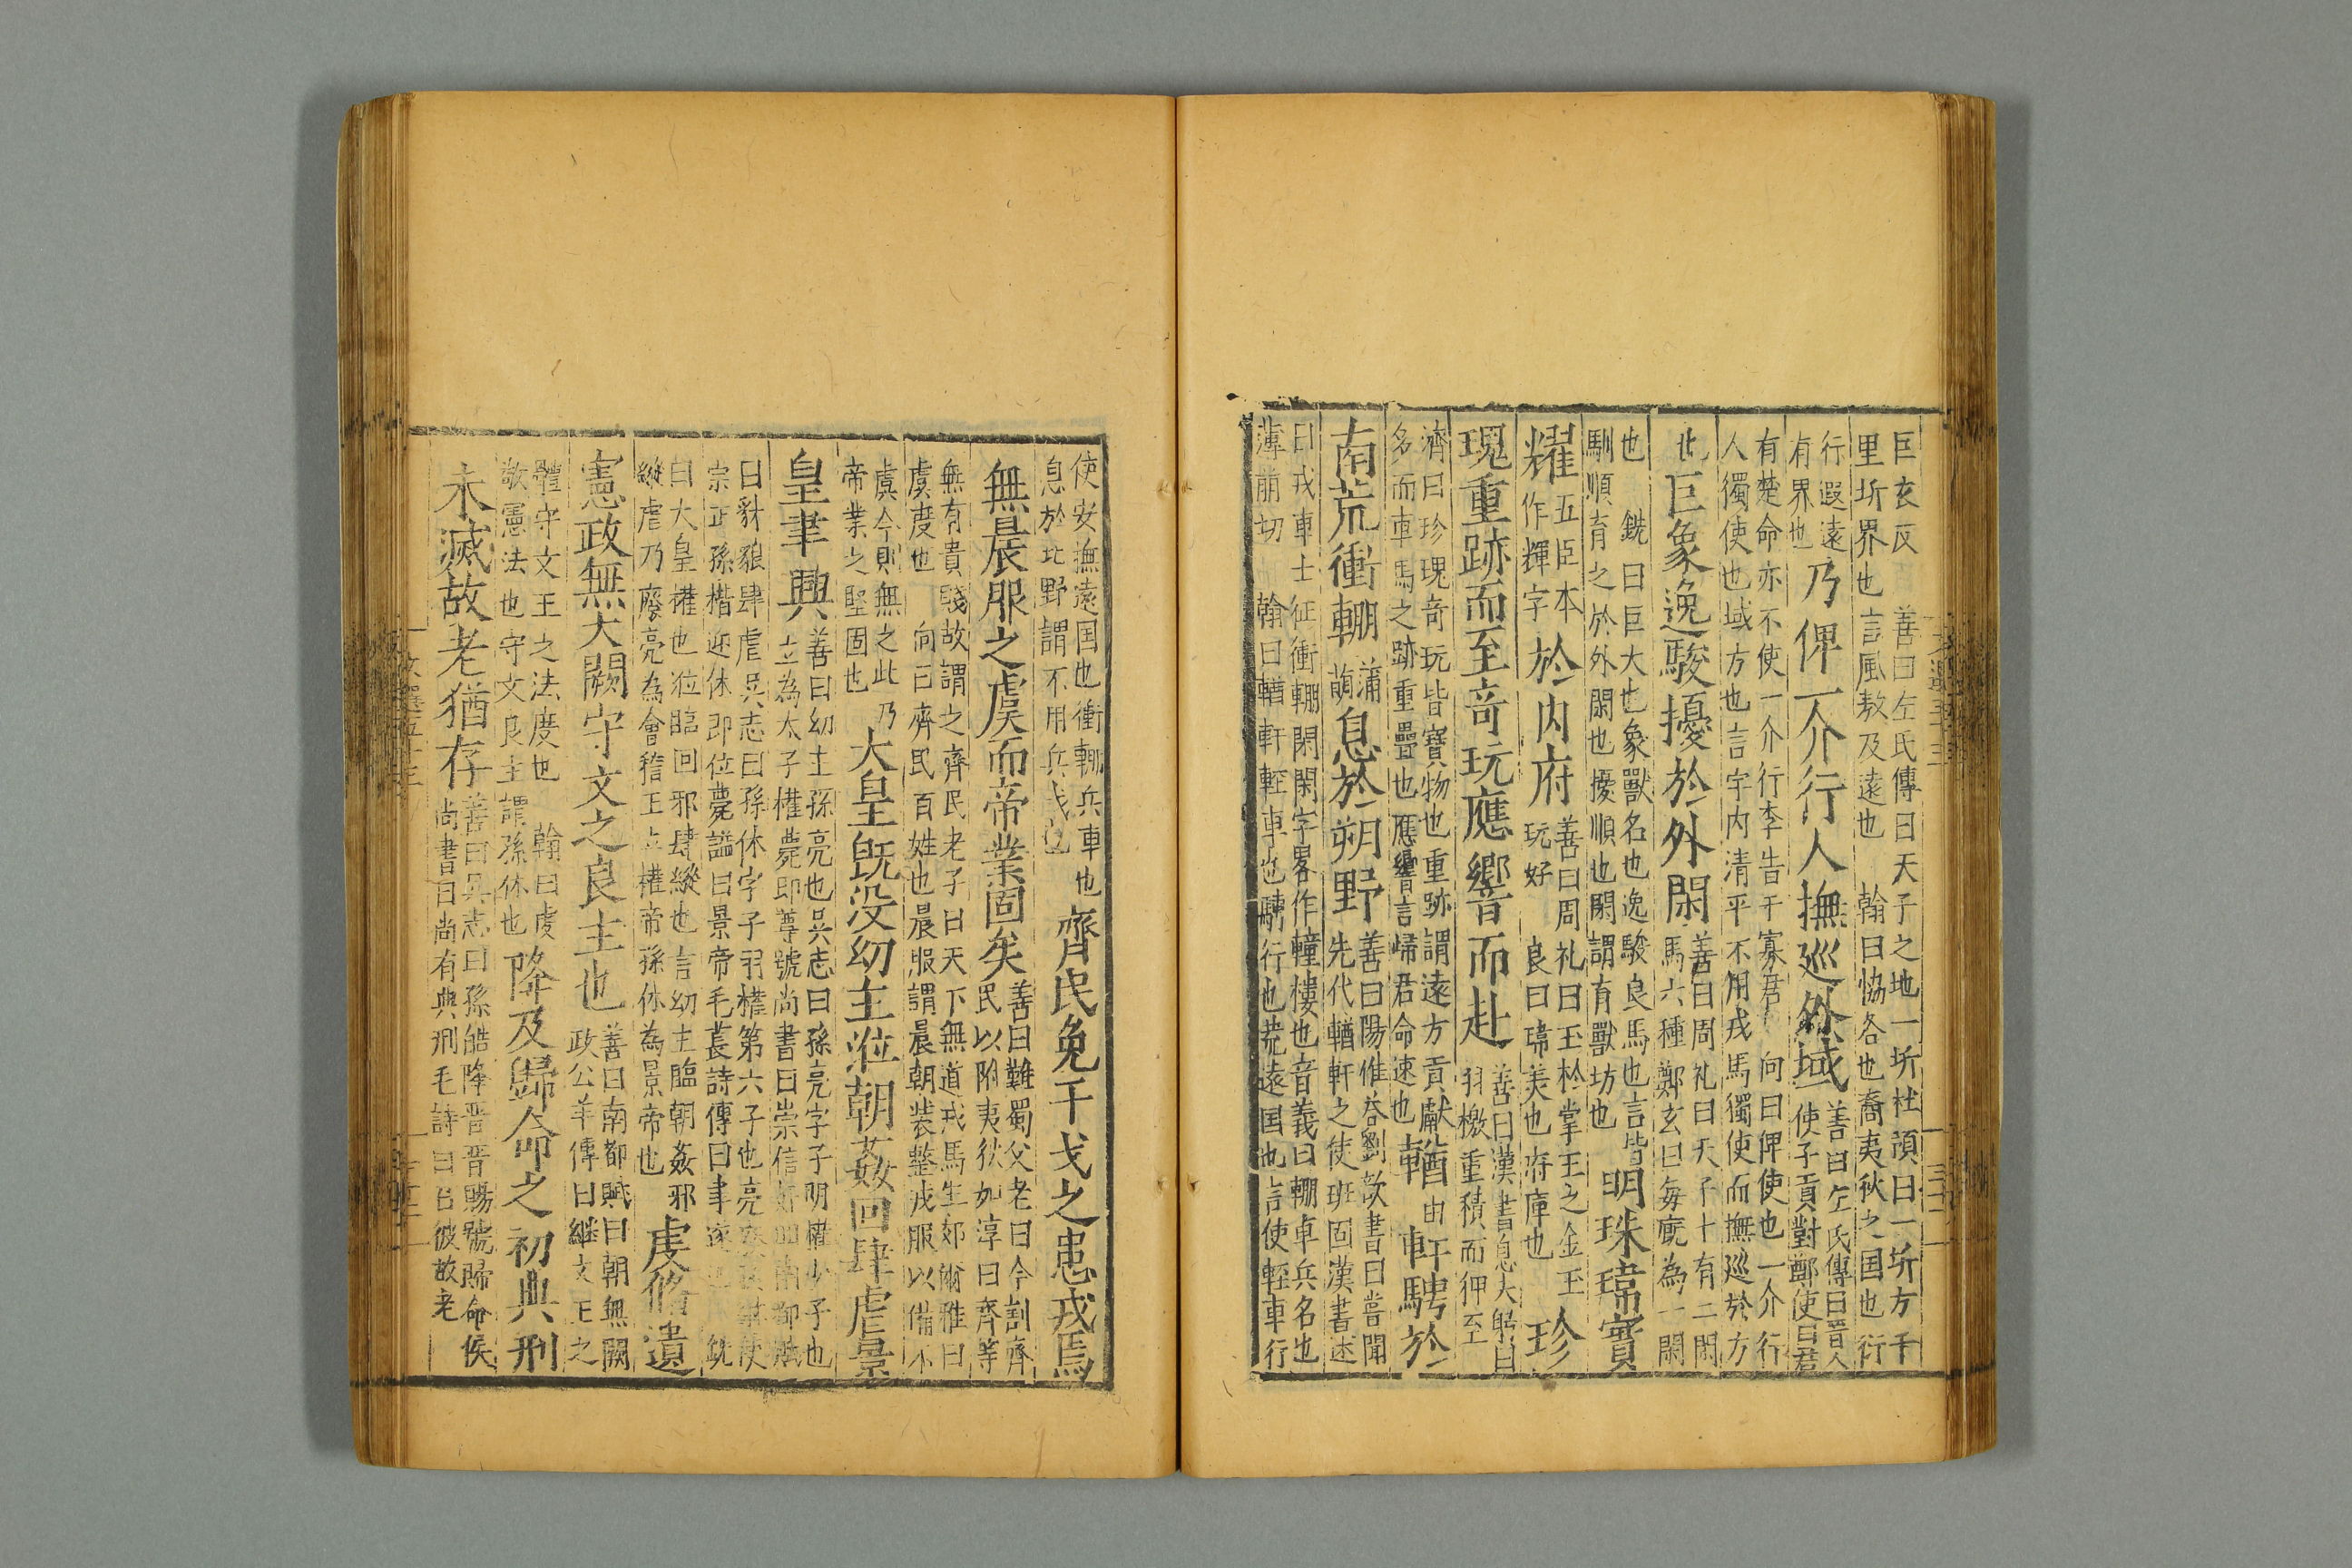 巨衣反　善曰左氏傳曰天子之地一圻杜預曰一圻方千
里圻界也　言風教及遠也　翰曰恊各也裔夷狄之国也衍
行遐遠
有界也
乃俾一介行人撫巡外域
善曰左氏傳曰晋人
使子貢對鄭使曰君
有楚命亦不使一介行李告于寡君　向曰俾使也一介行
人獨使也域方也言宇内清平不用戎馬獨使而撫巡於方
也
巨象逸駿擾於外閑
善曰周礼曰天子十有二閑
馬六種鄭玄曰每廐為一閑
也　銑曰巨大也象獸名也逸駿良馬也言皆
馴順育之於外閑也擾順也閑謂有獸坊也
明珠瑋寳
耀
五臣本
作輝字
於内府
善曰周礼曰玉府掌王之金玉
玩好　良曰瑋美也府庫也
珍
瑰重跡而至竒玩應響而赴
善曰漢書息夫躬曰
羽檄重積而狎至
濟曰珍瑰竒玩皆寳物也重跡謂遠方貢献
多而車馬之跡重疊也應響言歸君命速也
輶
由
軒騁於
南荒衝輣
蒲
萌
息於朔野
善曰陽惟荅劉歆書曰嘗聞
先代輶軒之使班固漢書述
曰戎車士征衝輣閑閑字畧作轒樓也音義曰輣卓兵名也
薄萠切　翰曰輶軒輕車也騁行也荒遠国也言使輕車行
使安撫遠国也衝輣兵車也
息於北野謂不用兵戎也
齊民免干戈之患戎馬
無晨服之虞而帝業固矣
善曰難蜀父老曰今割齊
民以附夷狄如淳曰齊等
無有貴賤故謂之齊民老子曰天下無道戎馬生郊爾雅曰
虞度也　向曰齊民百姓也晨服謂晨朝裝整戎服以備不
虞今則無之此
帝業之堅固也
乃大皇旣没幼主蒞朝姦回肆虐景
皇聿興
善曰幼主孫亮也吴志曰孫亮字子明權少子也
立為太子權薨即尊號尚書曰崇信姦回南都賦
曰豺狼肆虐吴志曰孫休字子羽權第六子也亮廢孫綝使
宗正孫楷迎休即位薨謚曰景帝毛萇詩傳曰聿遂也　銑
曰大皇權也蒞臨回邪肆縱也言幼主臨朝姦邪
縱虐乃廢亮為會稽王立權帝孫休為景帝也
䖍脩遺
憲政無大闕守文之良主也
善曰南都賦曰朝無闕
政公羊傳曰継文王之
體守文王之法度也　翰曰䖍
敬憲法也守文良主謂孫休也
降及歸命之初典刑
未滅故老猶存
善曰吴志曰孫皓降晋晋賜號歸命侯
尚書曰尚有典刑毛詩曰召彼故老